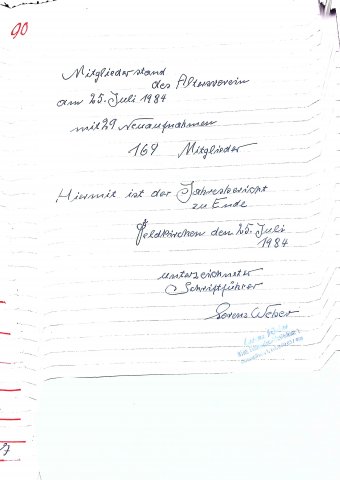 90
Mitgliederstand
des Altersverein
am 25. Juli 1984
mit 29 Neuaufnahmen
169 Mitglieder
Hiermit ist der Jahresbericht
zu Ende
Feldkirchen den 25. Juli
1984
unterzeichneter
Schriftführer
Lorenz Weber
7